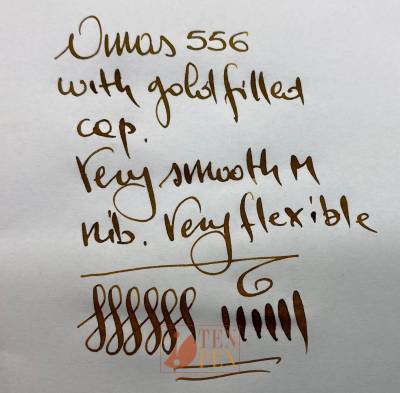 Omas 556
with gold filled
cap.
Very smooth M
nib. Very flexible
TEN
PEN